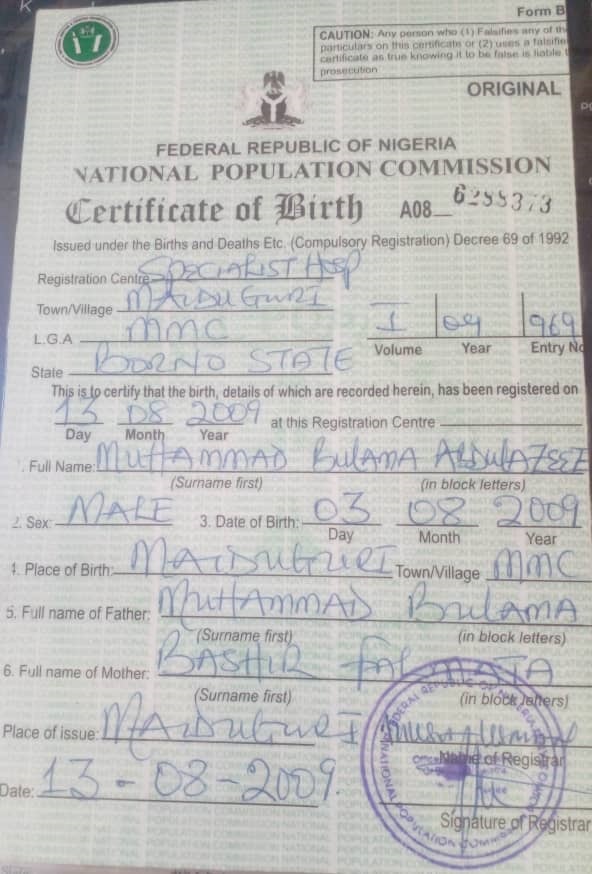 Form B
CAUTION: Any person who (1) Falsifies any of th
particulars on this certificate or (2) uses a falsifie
certificate as true knowing it to be false is liable t
prosecution
ORIGINAL
FEDERAL REPUBLIC OF NIGERIA
NATIONAL POPULATION COMMISSION
Certificate of Birth A08
Issued under the Births and Deaths Etc. (Compulsory Registration) Decree 69 of 1992
Registration Centre SPECIALIST HOSP
Town/Village MAIDUGURI
L.G.A MMC I 09 969
Volume Year Entry No
State BORNO STATE
This is to certify that the birth, details of which are recorded herein, has been registered on
13 08 2009 at this Registration Centre
Day Month Year
1. Full Name: MUHAMMAD BULAMA ABDULAZEEZ
(Surname first) (in block letters)
2. Sex: MALE 3. Date of Birth: 03 08 2009
Day Month Year
4. Place of Birth: MAIDUGURI Town/Village MMC
5. Full name of Father: MUHAMMAD BULAMA
(Surname first) (in block letters)
6. Full name of Mother: BASHIR FALMATA
(Surname first) (in block letters)
Place of issue: MAIDUGURI
Name of Registrar
Date: 13-08-2009.
Signature of Registrar